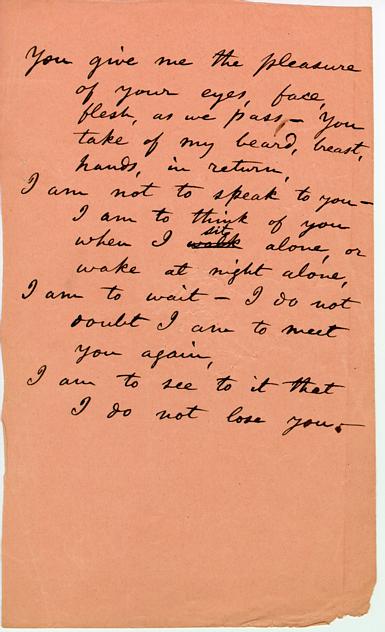 You give me the pleasure
of your eyes, face,
flesh, as we pass,— You
take of my beard, breast,
hands, in return,
I am not to speak to you—
I am to think of you
when I walk sit alone, or
wake at night alone,
I am to wait — I do not
doubt I am to meet
you again,
I am to see to it that
I do not lose you.